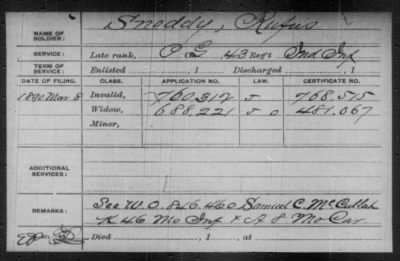 NAME OF SOLDIER: Sneddy, Rufus
SERVICE: Late rank, Co G, 43 Reg't Ind Inf
TERM OF SERVICE: Enlisted , 1 Discharged , 1
DATE OF FILING. CLASS. APPLICATION NO. LAW. CERTIFICATE NO.
1890 Mar. 8 Invalid, 760.312 768.515
Widow, 688.221 481.067
Minor,
ADDITIONAL SERVICES:
REMARKS: See W.O. 846.460 Samuel C. McCullah
K 46 Mo Inf & A 8 Mo Cav
Died , 1 , at